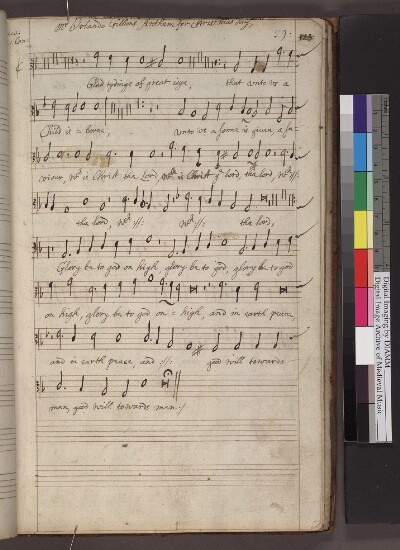 Mr Orlando Gibbons Anthem for Christmas day,
Glad tydings of great ioye, that vnto vs a
Child is = borne, vnto vs a sonne is given, a sa-
viour, wch is Christ the Lord, wch is Christ ye lord, the lord, wch :||:
the lord, wch :||: wch :||: the lord,
Glory be to god on high, glory be to god, glory be to god
on high, glory be to god on = high, and in earth peace,
and in earth peace, and :||: good will towards
men, good will towards men
Digital Imaging by DIAMM
Digital Image Archive of Medieval Music